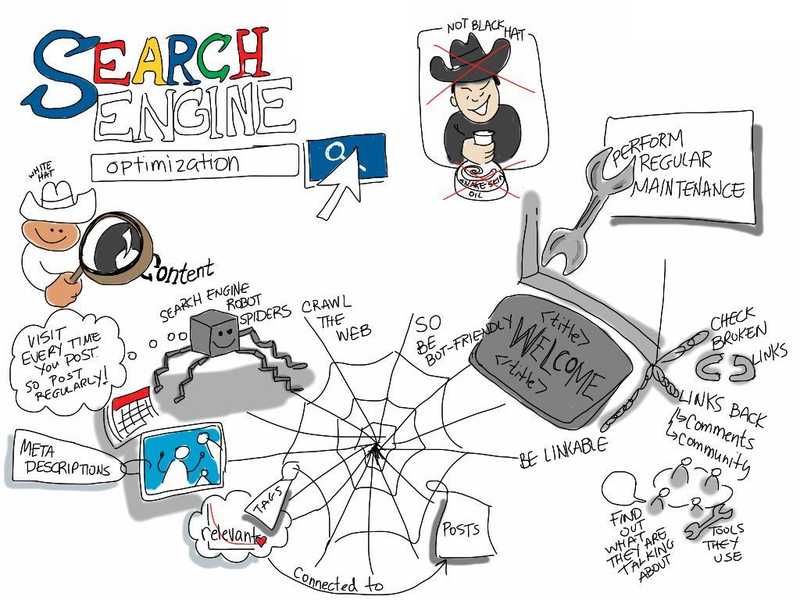 SEARCH
ENGINE
optimization
NOT BLACK HAT
SNAKE SKIN
OIL
PERFORM
REGULAR
MAINTENANCE
WHITE
HAT
Content
SEARCH ENGINE
ROBOT
SPIDERS
CRAWL
THE
WEB
SO
BE
BOT-FRIENDLY
<title>
WELCOME
</title>
CHECK
BROKEN
LINKS
VISIT
EVERY TIME
YOU POST
SO POST
REGULARLY!
LINKS BACK
Comments
Community
BE LINKABLE
META
DESCRIPTIONS
TAGS
relevant
POSTS
Connected to
FIND
OUT
WHAT
THEY ARE
TALKING
ABOUT
TOOLS
THEY
USE